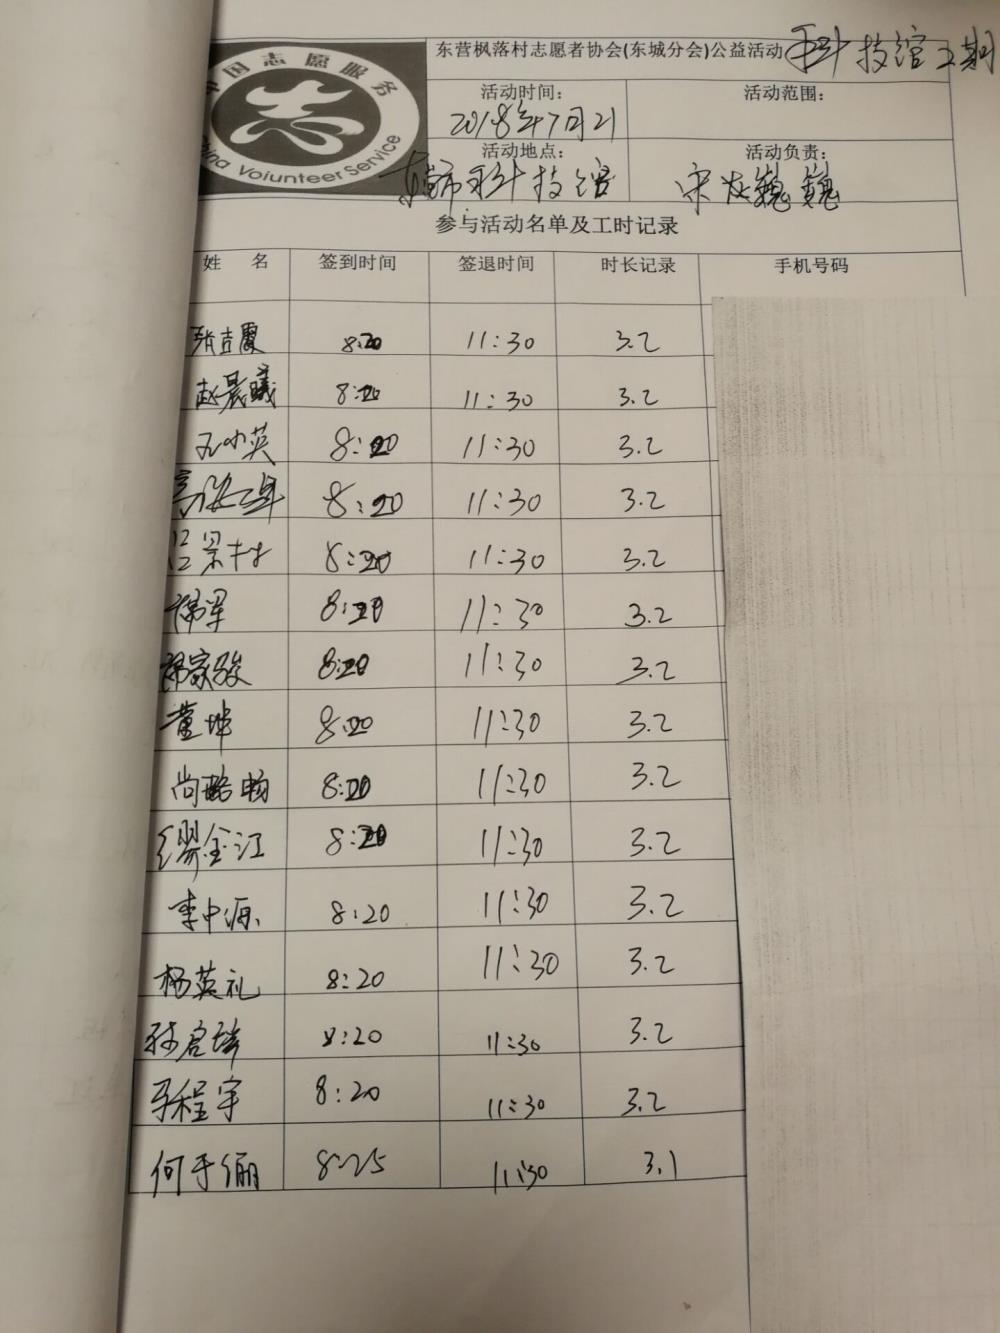 中国志愿服务
China Volunteer Service
东营枫落村志愿者协会(东城分会)公益活动 科技馆工期
活动时间： 活动范围：
2018年7月21
活动地点： 活动负责：
东营市科技馆 宋 巍巍
参与活动名单及工时记录
姓 名 签到时间 签退时间 时长记录 手机号码
8:20 11:30 3.2
赵晨曦 8:20 11:30 3.2
小英 8:20 11:30 3.2
8:20 11:30 3.2
8:20 11:30 3.2
8:20 11:30 3.2
家骏 8:20 11:30 3.2
董坤 8:20 11:30 3.2
尚 8:20 11:30 3.2
缪金江 8:20 11:30 3.2
李中源 8:20 11:30 3.2
杨英礼 8:20 11:30 3.2
孙启瑞 8:20 11:30 3.2
程宇 8:20 11:30 3.2
何于俪 8:25 11:30 3.1